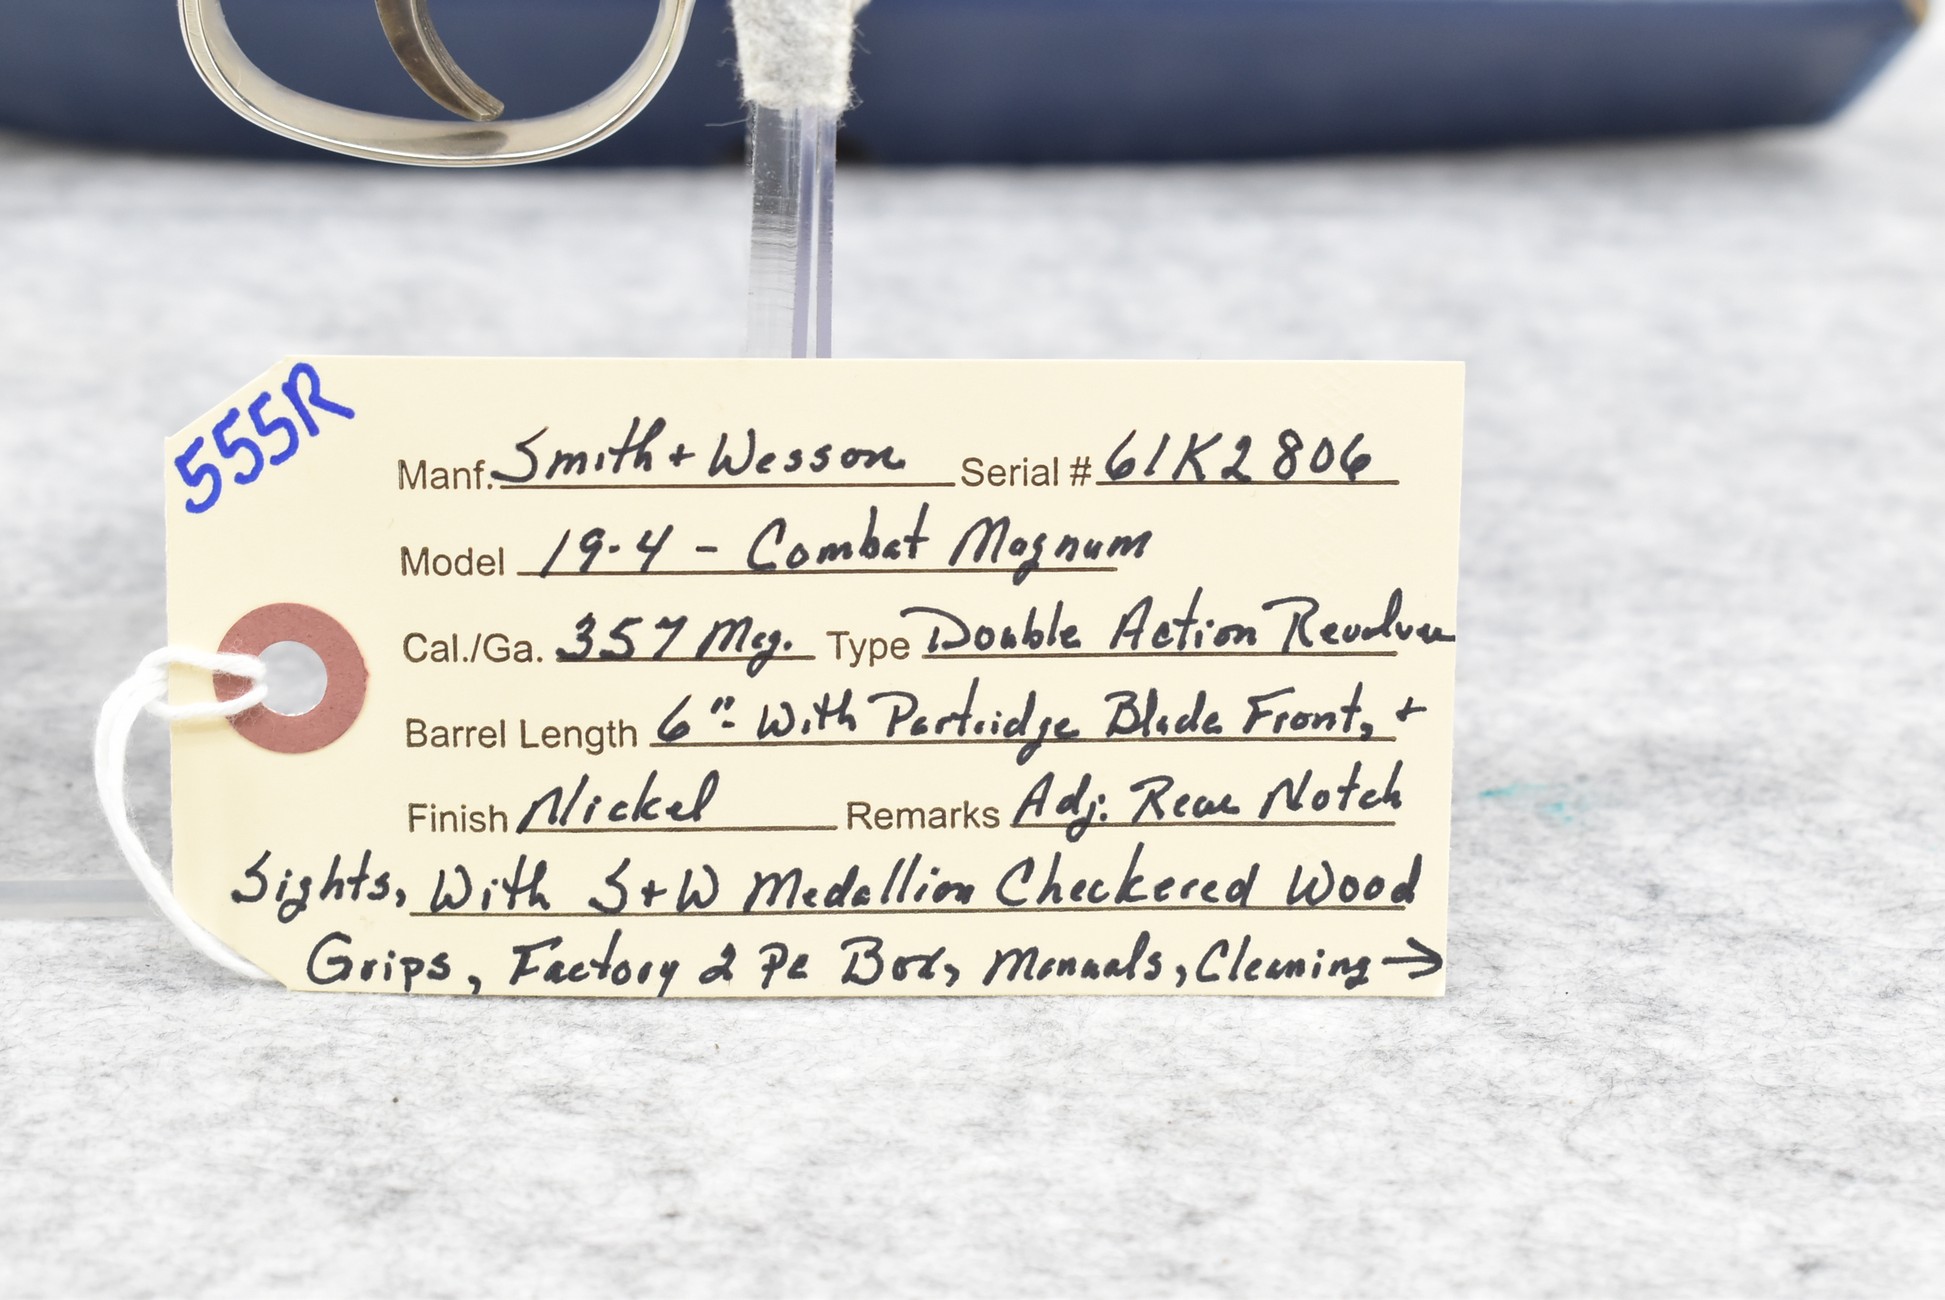 555R
Manf. Smith + Wesson Serial # 61K2806
Model 19-4 - Combat Magnum
Cal./Ga. 357 Mag. Type Double Action Revolver
Barrel Length 6"- With Partridge Blade Front, +
Finish Nickel Remarks Adj. Rear Notch
Sights, With S+W Medallion Checkered Wood
Grips, Factory 2 Pc Box, Manuals, Cleaning →